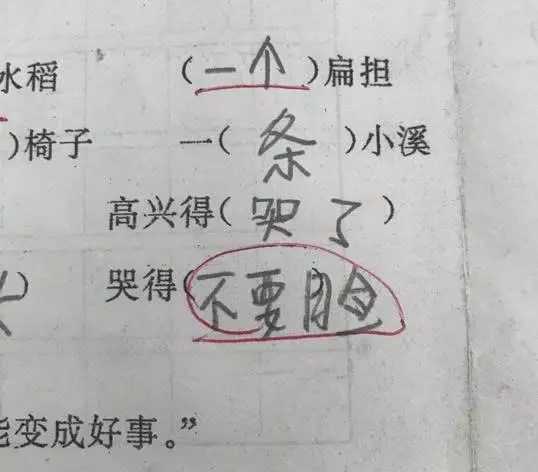 水稻 （一个）扁担
）椅子 一（条）小溪
高兴得（哭了）
） 哭得（不要脸
能变成好事。”